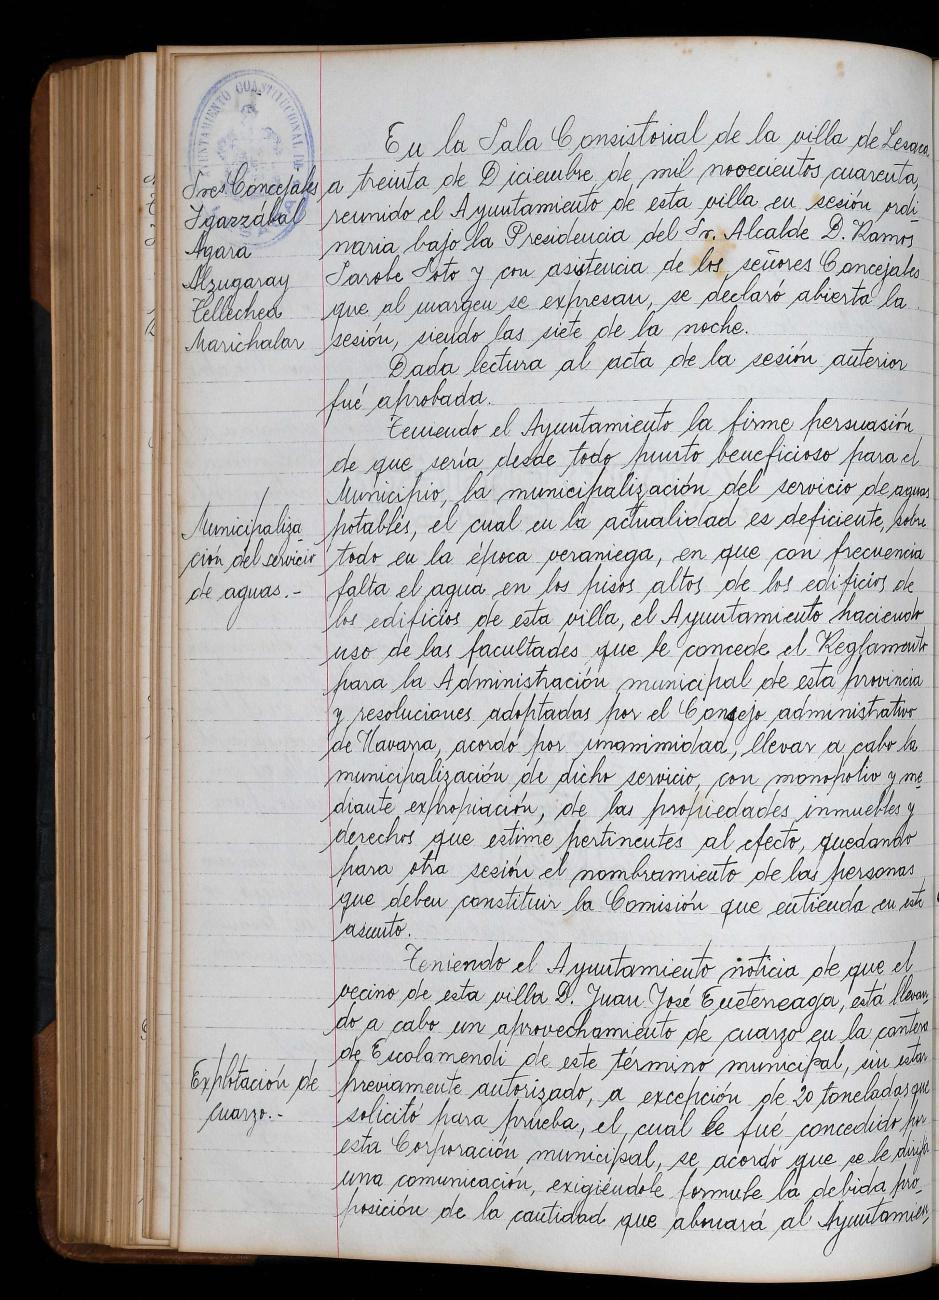 AYUNTAMIENTO CONSTITUCIONAL DE
Sres Concejales
Igarzábal
Agara
Alzugaray
Tellechea
Marichalar
En la Sala Consistorial de la villa de Lesaca,
a treinta de Diciembre de mil novecientos cuarenta,
reunido el Ayuntamiento de esta villa en sesión ordi
naria bajo la Presidencia del Sr. Alcalde D. Ramos
Sarobe Soto y con asistencia de los señores Concejales
que al margen se expresan, se declaró abierta la
sesión, siendo las siete de la noche.
Dada lectura al acta de la sesión anterior
fué aprobada.
Municipaliza-
ción del servicio
de aguas.-
Teniendo el Ayuntamiento la firme persuasión
de que sería desde todo punto beneficioso para el
Municipio, la municipalización del servicio de aguas
potables, el cual en la actualidad es deficiente, sobre
todo en la época veraniega, en que con frecuencia
falta el agua en los pisos altos de los edificios de
los edificios de esta villa, el Ayuntamiento haciendo
uso de las facultades que le concede el Reglamento
para la Administración municipal de esta provincia
y resoluciones adoptadas por el Consejo administrativo
de Navarra, acordó por unanimidad, llevar a cabo la
municipalización de dicho servicio, con monopolio y me
diante expropiación, de las propiedades inmuebles y
derechos que estime pertinentes al efecto, quedando
para otra sesión el nombramiento de las personas
que deben constituir la Comisión que entienda en este
asunto.
Explotación de
cuarzo.-
Teniendo el Ayuntamiento noticia de que el
vecino de esta villa D. Juan José Eueterneaga, está llevan
do a cabo un aprovechamiento de cuarzo en la cantera
de Escolamendi de este término municipal, sin estar
previamente autorizado, a excepción de 20 toneladas que
solicitó para prueba, el cual le fué concedido por
esta Corporación municipal, se acordó que se le dirija
una comunicación, exigiéndole formule la debida pro-
posición de la cantidad que abonará al Ayuntamien-